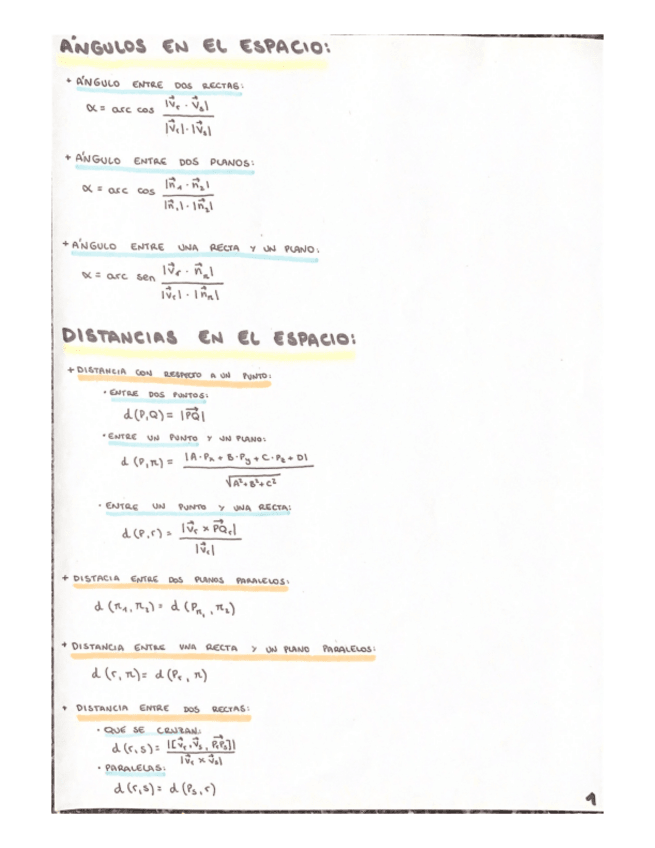 ÁNGULOS EN EL ESPACIO:
+ ÁNGULO ENTRE DOS RECTAS:
α = arc cos |v⃗r · v⃗s| / |v⃗r| · |v⃗s|
+ ÁNGULO ENTRE DOS PLANOS:
α = arc cos |n⃗1 · n⃗2| / |n⃗1| · |n⃗2|
+ ÁNGULO ENTRE UNA RECTA Y UN PLANO:
α = arc sen |v⃗r · n⃗π| / |v⃗r| · |n⃗π|
DISTANCIAS EN EL ESPACIO:
+ DISTANCIA CON RESPECTO A UN PUNTO:
• ENTRE DOS PUNTOS:
d(P,Q) = |PQ⃗|
• ENTRE UN PUNTO Y UN PLANO:
d (P,π) = |A·Px + B·Py + C·Pz + D| / √A²+B²+C²
• ENTRE UN PUNTO Y UNA RECTA:
d (P,r) = |v⃗r × PQ⃗r| / |v⃗r|
+ DISTACIA ENTRE DOS PLANOS PARALELOS:
d (π1, π2) = d (Pπ1, π2)
+ DISTANCIA ENTRE UNA RECTA Y UN PLANO PARALELOS:
d (r, π) = d (Pr, π)
+ DISTANCIA ENTRE DOS RECTAS:
• QUE SE CRUZAN:
d (r,s) = |[v⃗r, v⃗s, PrPs⃗]| / |v⃗r × v⃗s|
• PARALELAS:
d (r,s) = d (Ps, r)
1